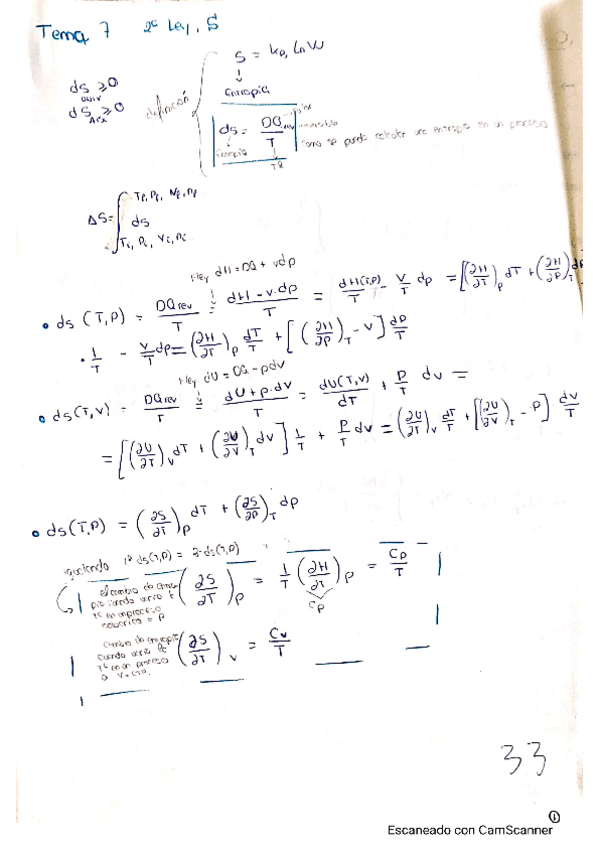 Tema 7 2ª Ley, S
S = k_B Ln W
Entropía
dS ≥ 0
dS ≥ 0
definición
dS = DQrev / T
Entropía
como se puede calcular una entropía en un proceso
ΔS = ∫ dS
1ª ley dH = DQ + Vdp
• dS (T,P) = DQrev / T = dH - V·dp / T = dH(T,P) / T - V/T dp = [(∂H/∂T)p dT + (∂H/∂P)T dp
· 1/T - V/T dp = (∂H/∂T)p dT/T + [(∂H/∂P)T - V] dp/T
1ª ley dU = DQ - pdV
• dS(T,V) = DQrev / T = dU + p·dV / T = dU(T,V) / dT + P/T dV =
= [(∂U/∂T)v dT + (∂U/∂V)T dV] 1/T + P/T dV = (∂U/∂T)v dT/T + [(∂U/∂V)T - P] dV/T
• dS(T,P) = (∂S/∂T)p dT + (∂S/∂P)T dp
igualando 1ª dS(T,P) = 2ª dS(T,P)
el cambio de entropía cuando varía la Tª en un proceso P (∂S/∂T)p = 1/T (∂H/∂T)p = Cp/T
Cp
Cambio de entropía cuando varía la Tª en un proceso a V = cte. (∂S/∂T)v = Cv/T
33
Escaneado con CamScanner